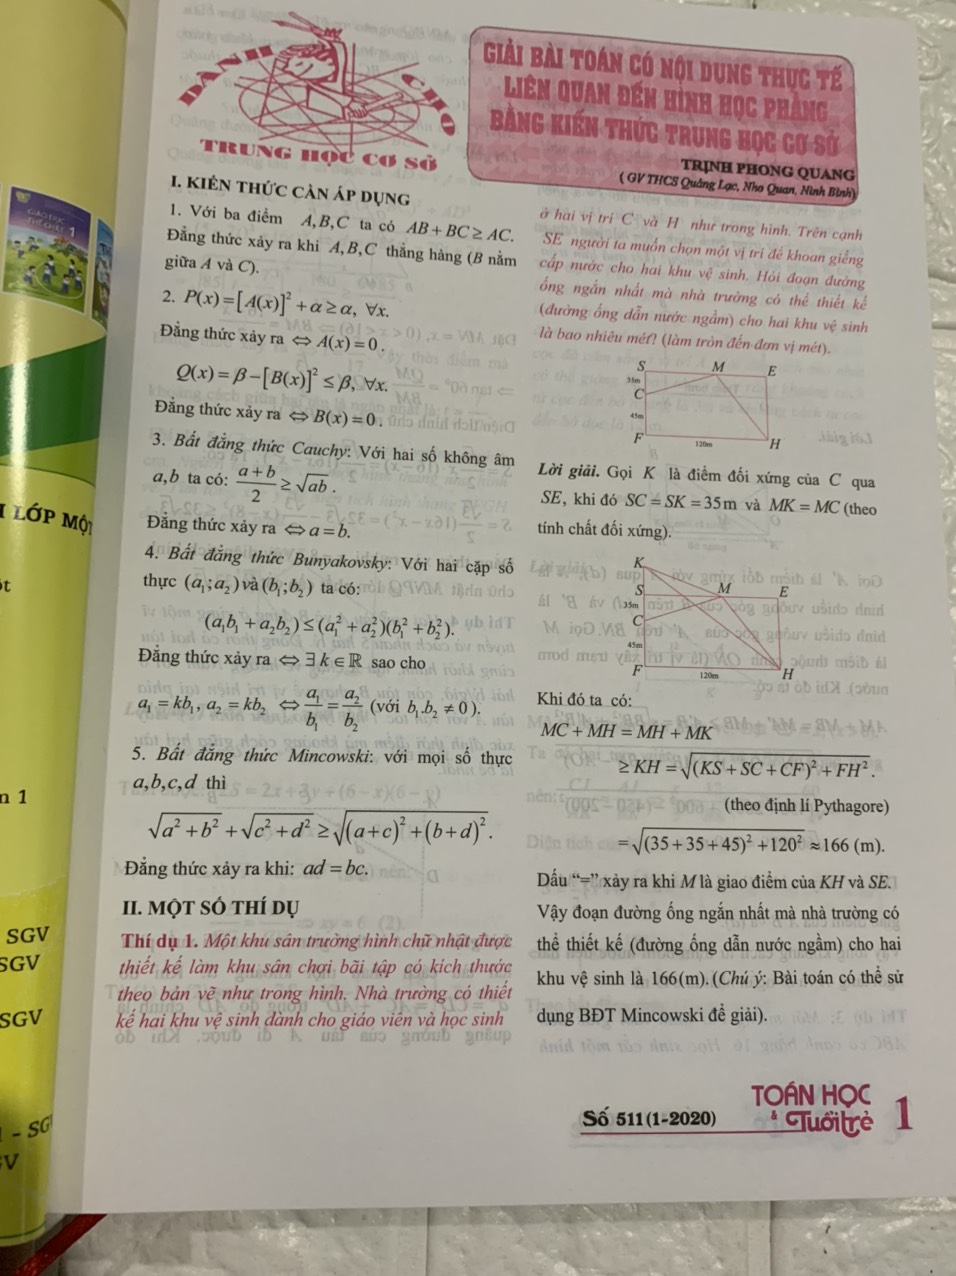 DÀNH CHO
TRUNG HỌC CƠ SỞ
GIẢI BÀI TOÁN CÓ NỘI DUNG THỰC TẾ
LIÊN QUAN ĐẾN HÌNH HỌC PHẲNG
BẰNG KIẾN THỨC TRUNG HỌC CƠ SỞ
TRỊNH PHONG QUANG
( GV THCS Quảng Lạc, Nho Quan, Ninh Bình)
I. KIẾN THỨC CẦN ÁP DỤNG
1. Với ba điểm A,B,C ta có AB + BC ≥ AC.
Đẳng thức xảy ra khi A,B,C thẳng hàng (B nằm
giữa A và C).
2. P(x) = [A(x)]² + α ≥ α, ∀x.
Đẳng thức xảy ra ⇔ A(x) = 0.
Q(x) = β − [B(x)]² ≤ β, ∀x.
Đẳng thức xảy ra ⇔ B(x) = 0.
3. Bất đẳng thức Cauchy: Với hai số không âm
a,b ta có: (a+b)/2 ≥ √ab.
Đẳng thức xảy ra ⇔ a = b.
4. Bất đẳng thức Bunyakovsky: Với hai cặp số
thực (a₁;a₂) và (b₁;b₂) ta có:
(a₁b₁ + a₂b₂) ≤ (a₁² + a₂²)(b₁² + b₂²).
Đẳng thức xảy ra ⇔ ∃ k ∈ ℝ sao cho
a₁ = kb₁, a₂ = kb₂ ⇔ a₁/b₁ = a₂/b₂ (với b₁.b₂ ≠ 0).
5. Bất đẳng thức Mincowski: với mọi số thực
a,b,c,d thì
√(a² + b²) + √(c² + d²) ≥ √((a+c)² + (b+d)²).
Đẳng thức xảy ra khi: ad = bc.
II. MỘT SỐ THÍ DỤ
Thí dụ 1. Một khu sân trường hình chữ nhật được
thiết kế làm khu sân chơi bãi tập có kích thước
theo bản vẽ như trong hình. Nhà trường có thiết
kế hai khu vệ sinh dành cho giáo viên và học sinh
ở hai vị trí C và H như trong hình. Trên cạnh
SE người ta muốn chọn một vị trí để khoan giếng
cấp nước cho hai khu vệ sinh. Hỏi đoạn đường
ống ngắn nhất mà nhà trường có thể thiết kế
(đường ống dẫn nước ngầm) cho hai khu vệ sinh
là bao nhiêu mét? (làm tròn đến đơn vị mét).
S M E
35m
C
45m
F 120m H
Lời giải. Gọi K là điểm đối xứng của C qua
SE, khi đó SC = SK = 35m và MK = MC (theo
tính chất đối xứng).
K
S M E
35m
C
45m
F 120m H
Khi đó ta có:
MC + MH = MH + MK
≥ KH = √((KS + SC + CF)² + FH²).
(theo định lí Pythagore)
= √((35 + 35 + 45)² + 120²) ≈ 166 (m).
Dấu “=” xảy ra khi M là giao điểm của KH và SE.
Vậy đoạn đường ống ngắn nhất mà nhà trường có
thể thiết kế (đường ống dẫn nước ngầm) cho hai
khu vệ sinh là 166(m). (Chú ý: Bài toán có thể sử
dụng BĐT Mincowski để giải).
Số 511(1-2020)
TOÁN HỌC
& Tuổi trẻ
1
GIÁO DỤC
THỂ CHẤT 1
LỚP MỘT
1
SGV
SGV
SGV